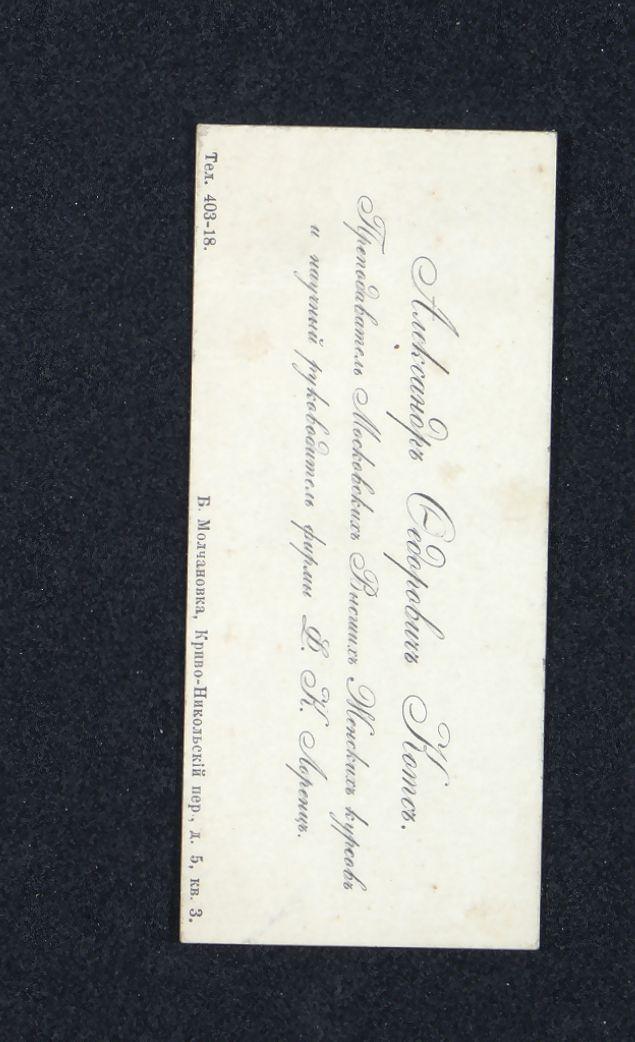 Александръ Ѳедоровичъ Котсъ.
Преподаватель Московскихъ Высшихъ Женскихъ курсовъ
и научный руководитель фирмы Ф. К. Лоренцъ.
Тел. 403-18.
Б. Молчановка, Криво-Никольскій пер., д. 5, кв. 3.